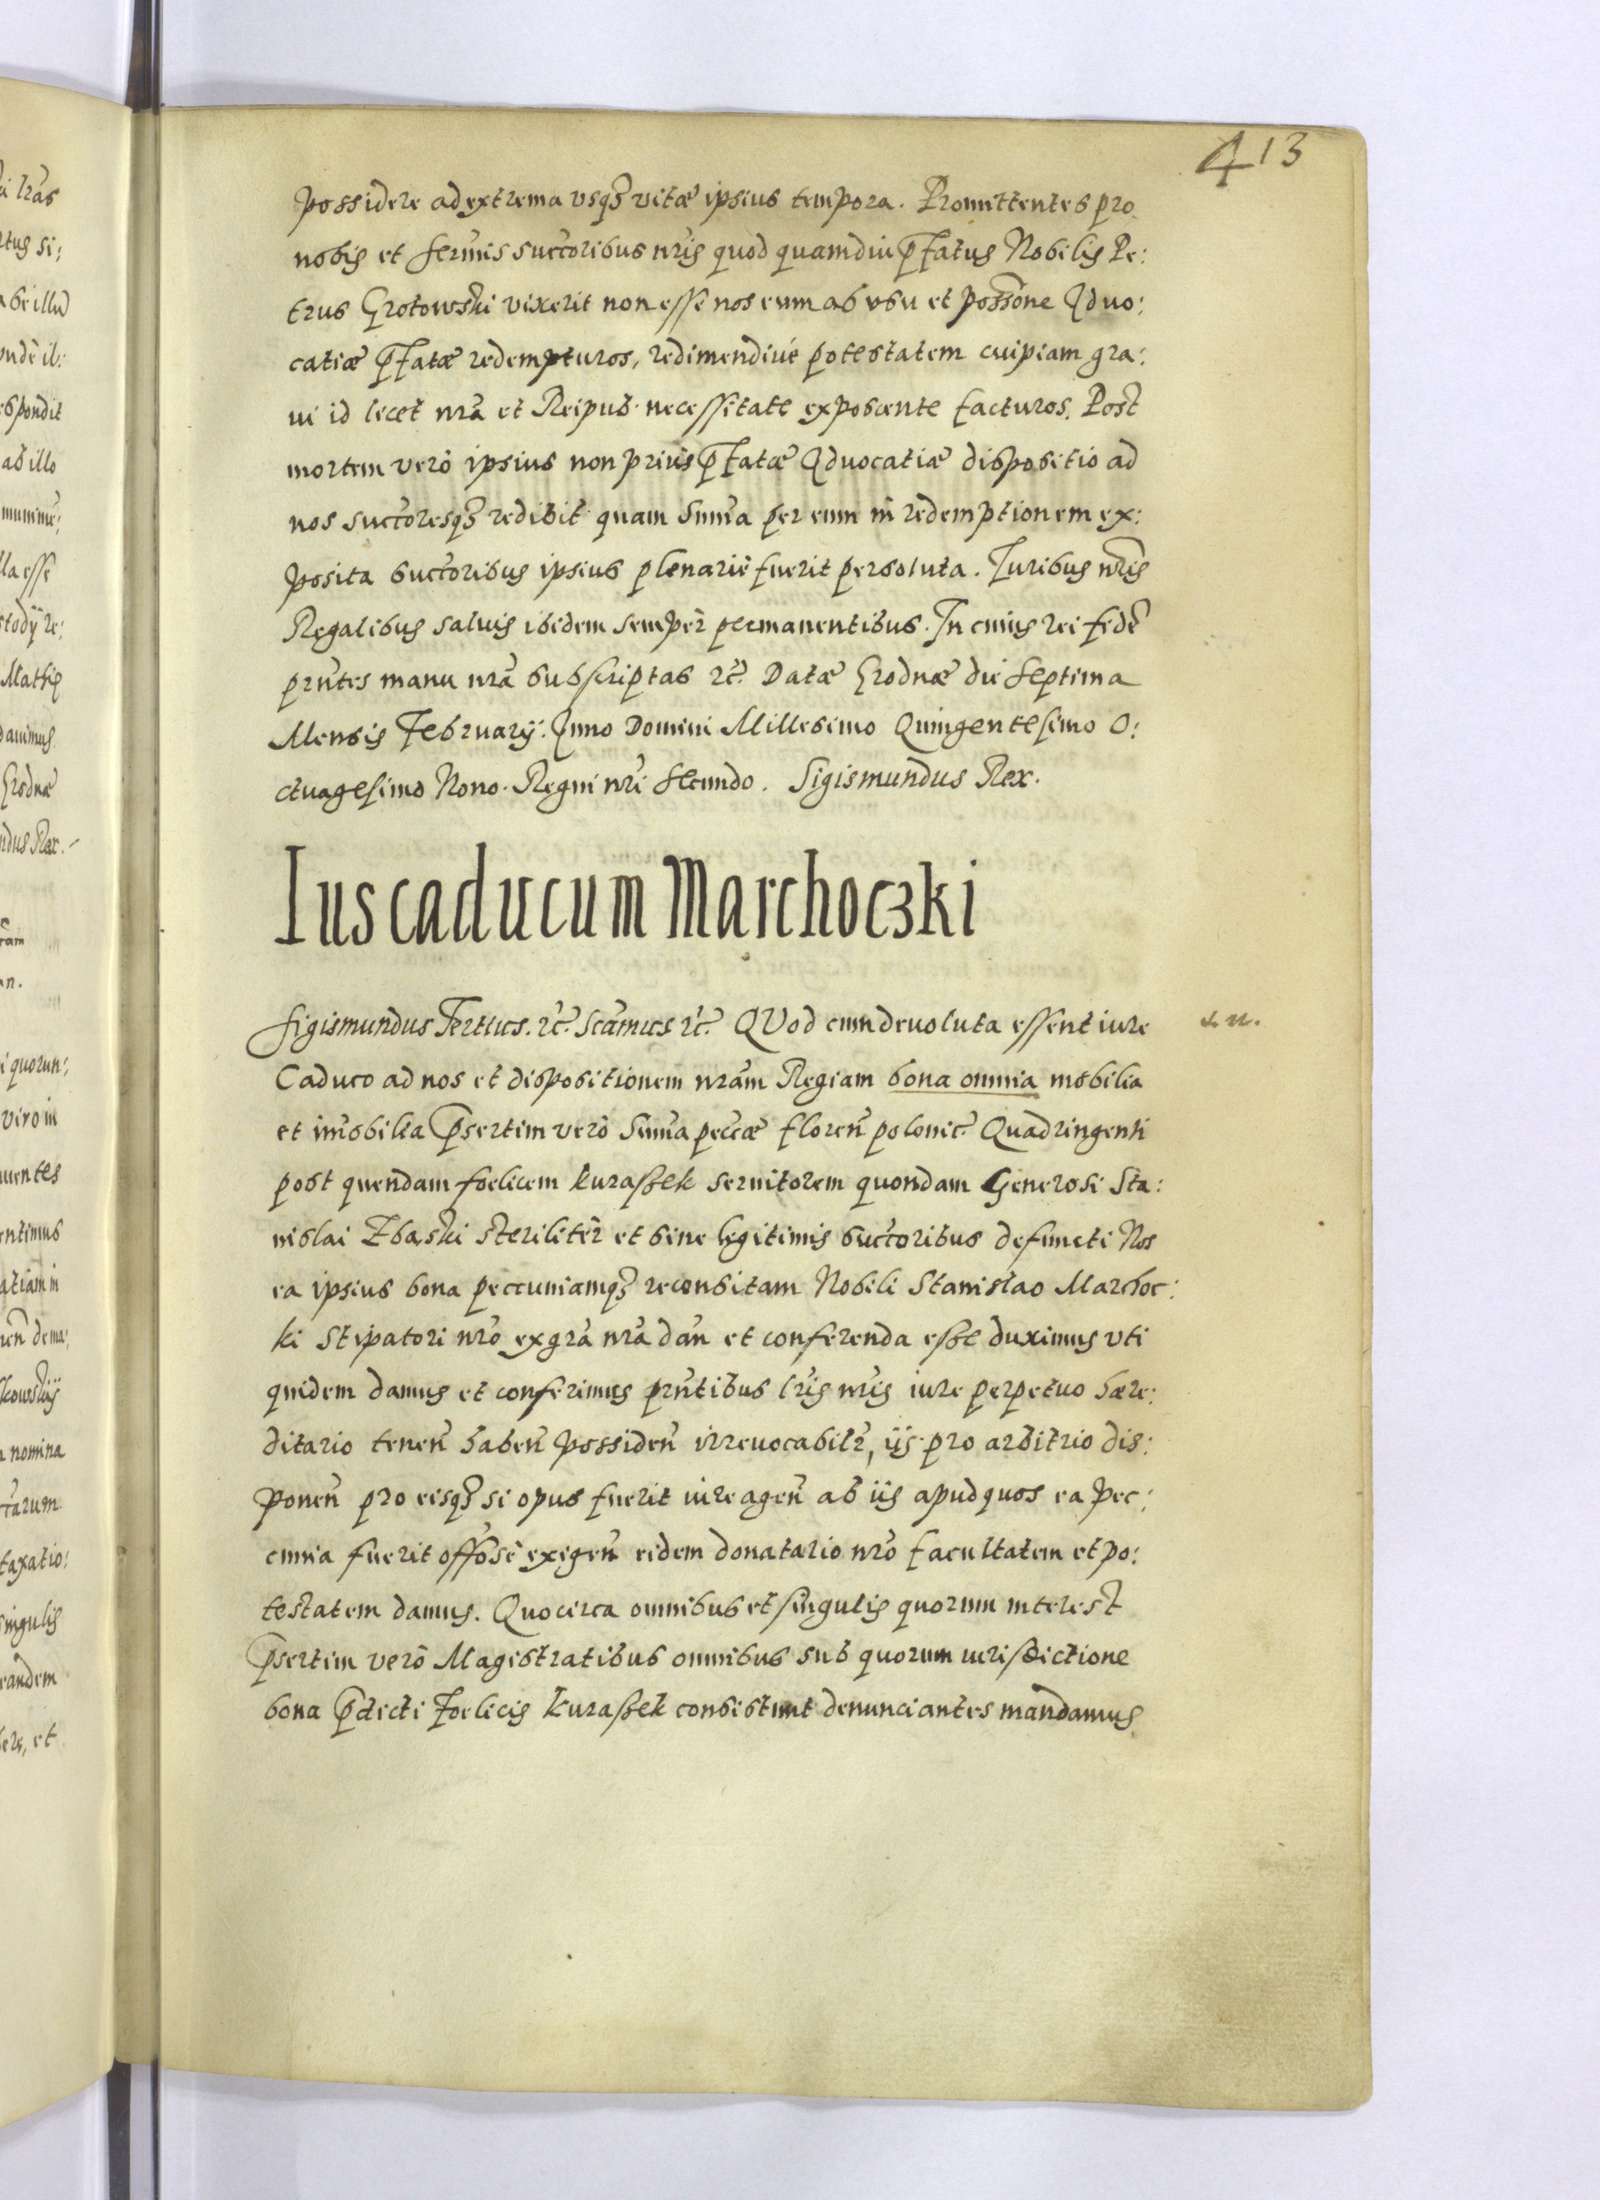 413
possidere ad extrema vsqȝ vitæ ipsius tempora. Promittentes pro
nobis et sermis succoribus nris quod quamdiu pfatus Nobilis Pe:
trus Grotowski vixerit non esse nos eum ab vsu et possone Aduo:
catiæ pfatæ redempturos, redimendiue potestatem cuipiam gra:
ui id licet nra et Reipub. necessitate exposcente facturos. Post
mortem verò ipsius non prius pfatæ Aduocatiæ dispositio ad
nos succoresqȝ redibit quam suma per eum in redemptionem ex:
posita succoribus ipsius plenariè fuerit persoluta. Iuribus nris
Regalibus saluis ibidem semper permanentibus. In cuius rei fidē
prntes manu nra subscriptas rc. Datæ Grodnæ die septima
Mensis February. Anno Domini Millesimo Quingentesimo O:
ctuagesimo Nono. Regni nri secundo. Sigismundus Rex.
Ius caducum Marchoczki
Sigismundus Tertius. rc. Scamus rc. QVod cum deuoluta essent iure
Caduco ad nos et dispositionem nram Regiam bona omnia mobilia
et imobilia psertim verò suma peccæ floren polonic. Quadringenti
post quendam foelicem Kuraßek seruitorem quondam Generosi Sta:
nislai Zbąski steriliter et sine legitimis succoribus defuncti Nos
ea ipsius bona peccuniamqȝ reconsitam Nobili Stanislao Marchoc:
ki Stipatori nro ex gra nra dan et conferenda eße duximus vti
quidem damus et conferimus prntibus lris nris iure perpetuo hære:
ditario tenen haben possiden irreuocabilr, ijs pro arbitrio dis:
ponen pro eisqȝ si opus fuerit iure agen ab iis apud quos ea pec:
cunia fuerit exigen eidem donatario nro facultatem et po:
testatem damus. Quocirca omnibus et singulis quorum interest
psertim verò Magistratibus omnibus sub quorum iurisdictione
bona pdicti foelicis Kuraßek consistunt denunciantes mandamus